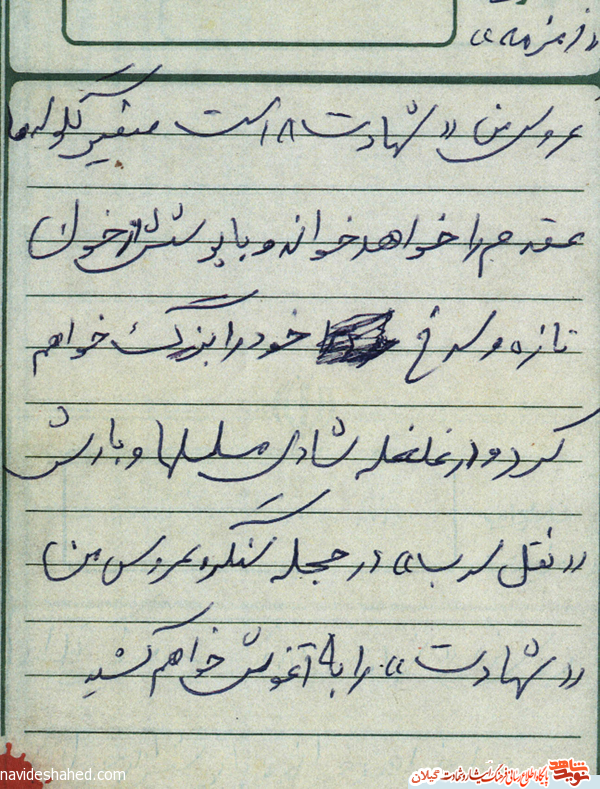 «زمزمه»
عروس من «شهادت» است صفیر گلوله‌ها
عقدم را خواهد خواند و با پوششی از خون
تازه و سرخ خود را بزرگ خواهم
کرد و از غلغله شادی مسلسلها و بارش
«نقل سرب» در حجله سنگر و عروس من
«شهادت» را به آغوش خواهم کشید
navideshahed.com
پایگاه اطلاع رسانی فرهنگ ایثار و شهادت گیلان
نوید شاهد